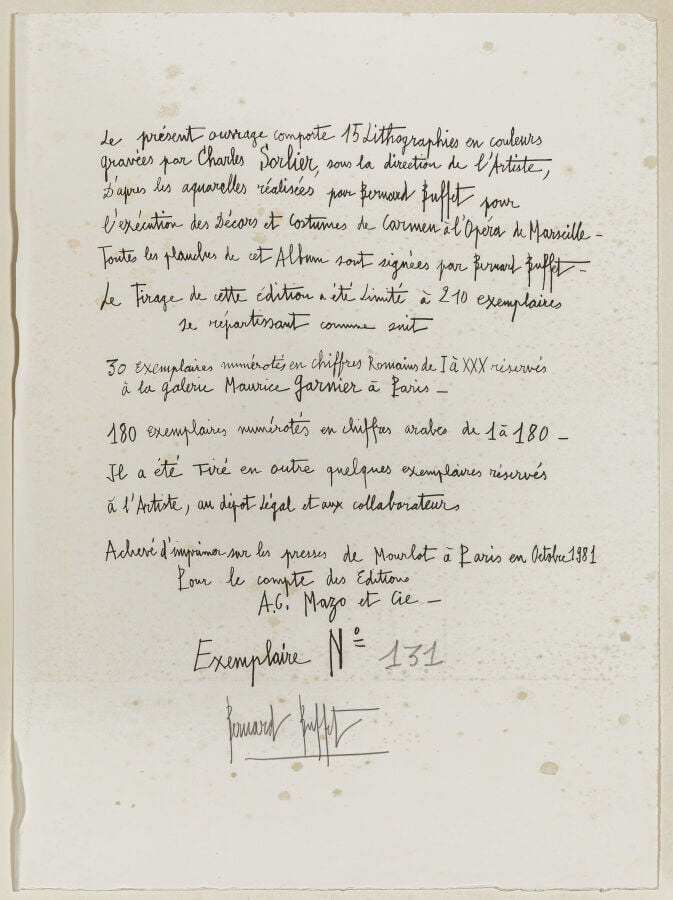 Le présent ouvrage comporte 15 Lithographies en couleurs
gravées par Charles Sorlier, sous la direction de l'Artiste,
D'après les aquarelles réalisées par Bernard Buffet pour
l'exécution des Décors et Costumes de Carmen à l'Opéra de Marseille -
Toutes les planches de cet Album sont signées par Bernard Buffet -
Le Tirage de cette édition a été Limité à 210 exemplaires
se répartissant comme suit
30 exemplaires numérotés en chiffres Romains de I à XXX réservés
à la galerie Maurice Garnier à Paris -
180 exemplaires numérotés en chiffres arabes de 1 à 180 -
Il a été Tiré en outre quelques exemplaires réservés
à l'Artiste, au dépot légal et aux collaborateurs
Achevé d'imprimer sur les presses de Mourlot à Paris en Octobre 1981
Pour le compte des Editions
A.C. Mazo et Cie -
Exemplaire Nº 131
Bernard Buffet